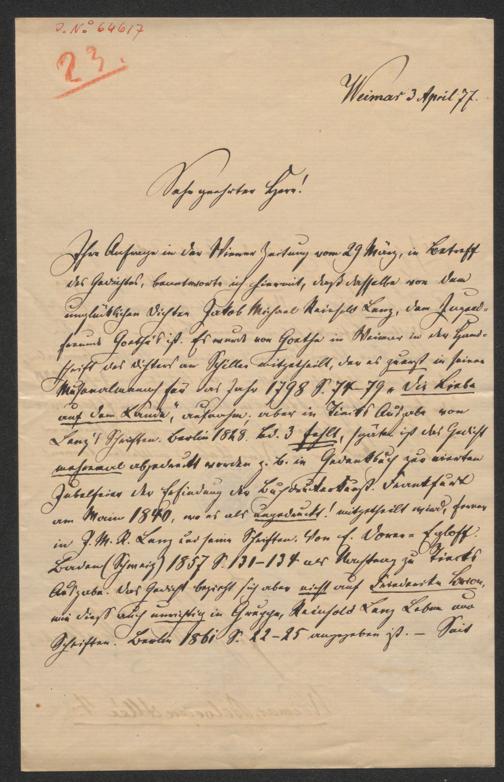 J. No 64617
23.
Weimar 3 April 77.
Sehr geehrter Herr!
Ihre Anfrage in der Wiener Zeitung vom 29 März, in Betreff
des Gedichtes, beantworte ich hiermit, daß dasselbe von dem
unglücklichen Dichter Jakob Michael Reinhold Lenz, dem Jugend-
freund Goethe's ist. Es wurde von Goethe in Weimar in der Hand-
schrift des Dichters an Schiller mitgetheilt, der es zuerst in seinen
Musenalmanach für das Jahr 1798 S. 74-79 „Die Liebe
auf dem Lande", aufnahm, aber in Tiecks Ausgabe von
Lenz's Schriften. Berlin 1828. Bd. 3 fehlt, später ist das Gedicht
mehremal abgedruckt worden z. B. in Gedenkbuch zur vierten
Jubelfeier der Erfindung der Buchdruckerkunst. Frankfurt
am Main 1840, wo es als ungedruckt! mitgetheilt wird, ferner
in J. M. R. Lenz und seine Schriften. Von E. Dorer-Egloff.
Baden (Schweiz) 1857 S. 131-134 als Nachtrag zu Tiecks
Ausgabe. Das Gedicht bezieht sich aber nicht auf Friederike Brion,
wie dieß auch unrichtig in Gruppe, Reinhold Lenz Leben und
Schriften. Berlin 1861 S. 22-25 angegeben ist. — Seit